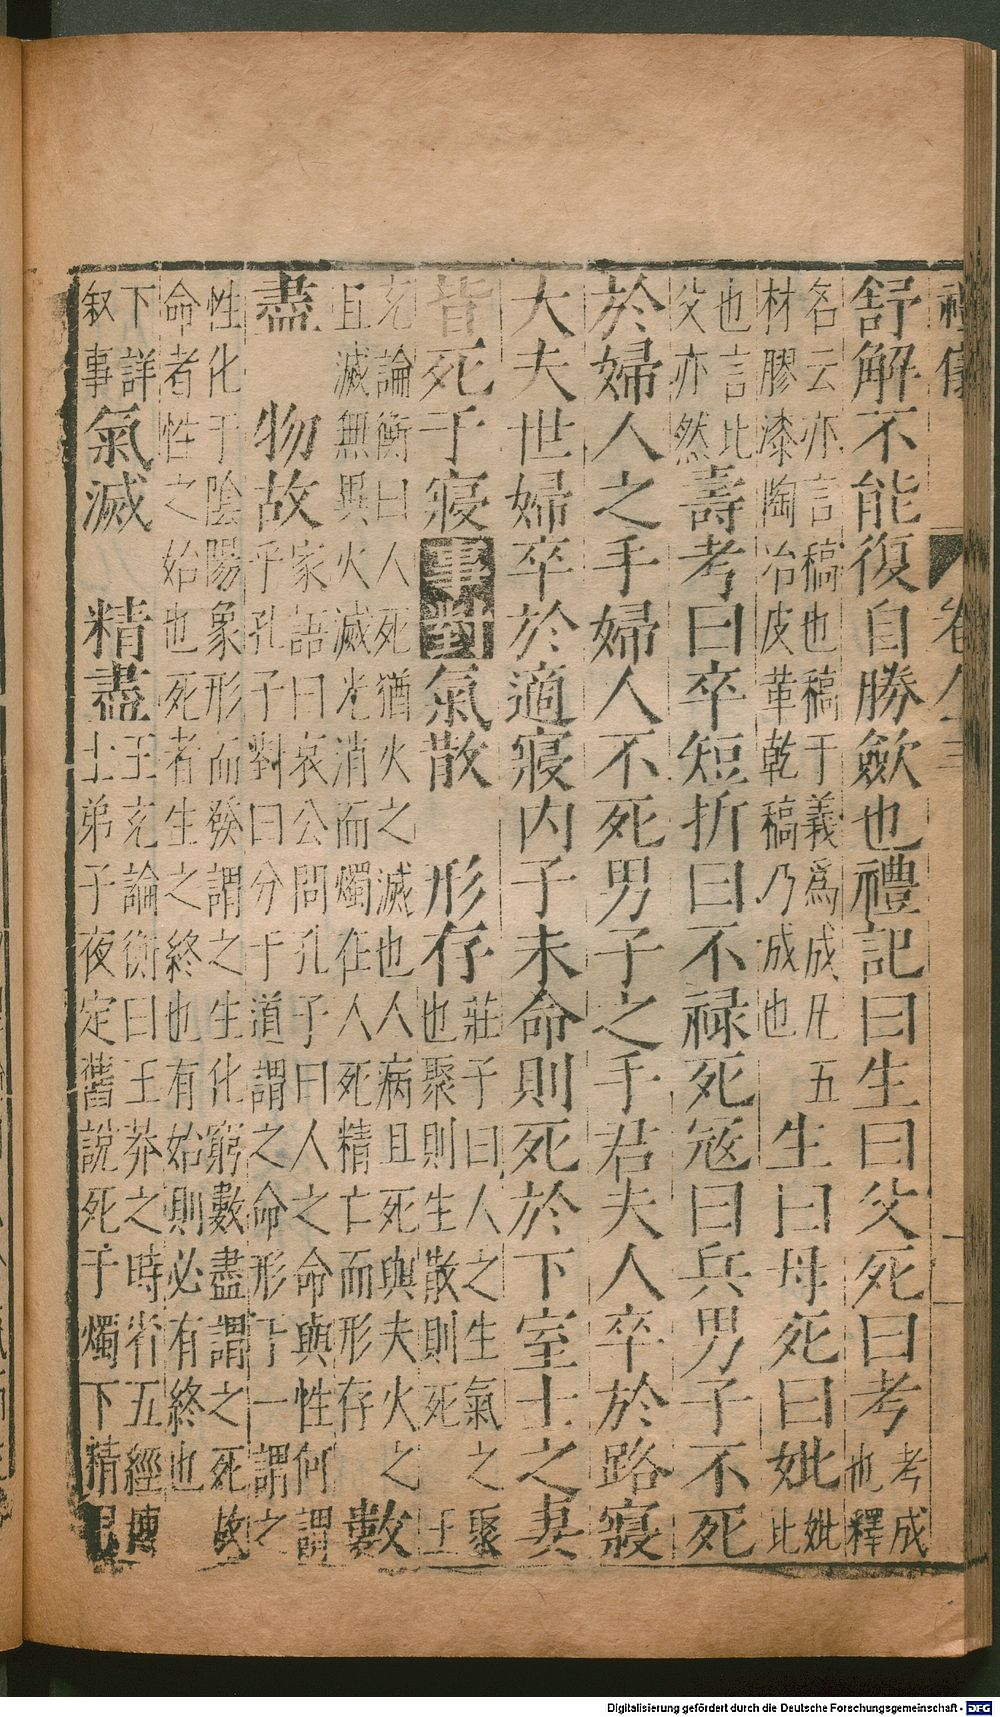 禮儀 卷
舒解不能復自勝斂也禮記曰生曰父死曰考考成也釋
名云亦言稿也稿于義爲成凡五材膠漆陶冶皮革乾稿乃成也生曰母死曰妣妣比
也言比父亦然壽考曰卒短折曰不禄死寇曰兵男子不死
於婦人之手婦人不死男子之手君夫人卒於路寢
大夫世婦卒於適寢内子未命則死於下室士之妻
皆死于寢 事對 氣散 形存 莊子曰人之生氣之聚也聚則生散則死 王
充論衡曰人死猶火之滅也人病且死與夫火之且滅無異火滅光消而燭在人死精亡而形存 數
盡 物故 家語曰哀公問孔子曰人之命與性何謂乎孔子對曰分于道謂之命形于一謂之
性化于陰陽象形而發謂之生化窮數盡謂之死故命者性之始也死者生之終也有始則必有終也
下詳叙事 氣滅 精盡 王充論衡曰王莽之時省五經博士弟子夜定舊說死于燭下精思
Digitalisierung gefördert durch die Deutsche Forschungsgemeinschaft - DFG